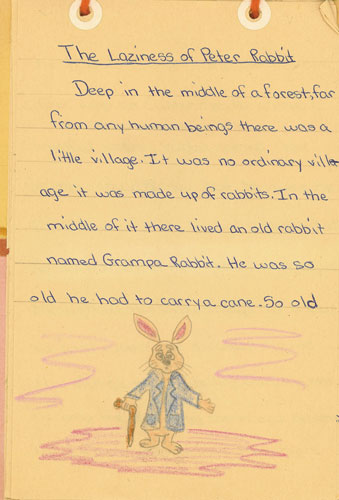 The Laziness of Peter Rabbit
Deep in the middle of a forest, far
from any human beings there was a
little village. It was no ordinary vill-
age it was made up of rabbits. In the
middle of it there lived an old rabbit
named Grampa Rabbit. He was so
old he had to carry a cane. So old